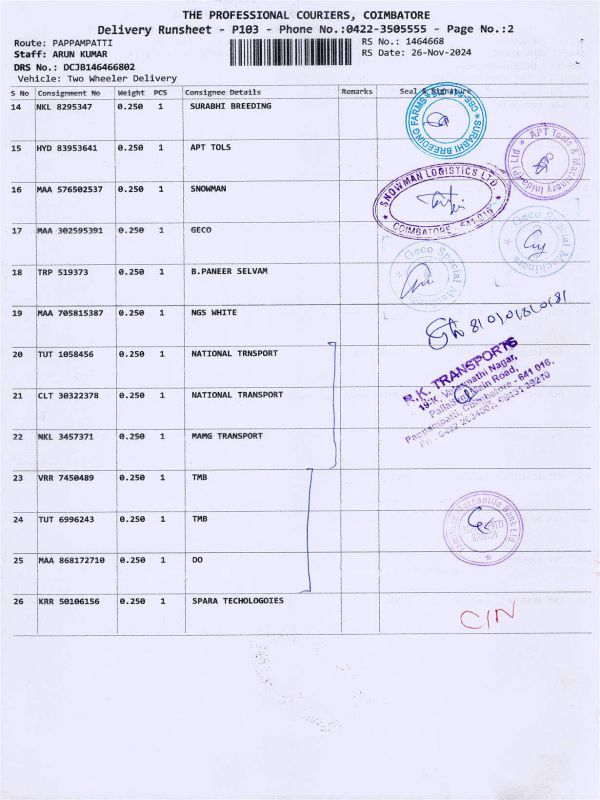 THE PROFESSIONAL COURIERS, COIMBATORE
Delivery Runsheet - P103 - Phone No.:0422-3505555 - Page No.:2
Route: PAPPAMPATTI
Staff: ARUN KUMAR
DRS No.: DCJB146466802
Vehicle: Two Wheeler Delivery
RS No.: 1464668
RS Date: 26-Nov-2024
S No Consignment No Weight PCS Consignee Details Remarks Seal & Signature
14 NKL 8295347 0.250 1 SURABHI BREEDING
SURABHI BREEDING FARMS
15 HYD 83953641 0.250 1 APT TOLS
APT Tools & Machinery
16 MAA 576502537 0.250 1 SNOWMAN
SNOWMAN LOGISTICS LTD
COIMBATORE - 641 016
17 MAA 302595391 0.250 1 GECO
Geco Special Machines
18 TRP 519373 0.250 1 B.PANEER SELVAM
Geco Special Machines
19 MAA 705815387 0.250 1 NGS WHITE
20 TUT 1058456 0.250 1 NATIONAL TRNSPORT
R.K. TRANSPORTS
Main Road,
Pappampatti, Coimbatore - 641 016.
21 CLT 30322378 0.250 1 NATIONAL TRANSPORT
22 NKL 3457371 0.250 1 MAMG TRANSPORT
23 VRR 7450489 0.250 1 TMB
24 TUT 6996243 0.250 1 TMB
Mercantile Bank Ltd
25 MAA 868172710 0.250 1 DO
26 KRR 50106156 0.250 1 SPARA TECHOLOGOIES
C/N